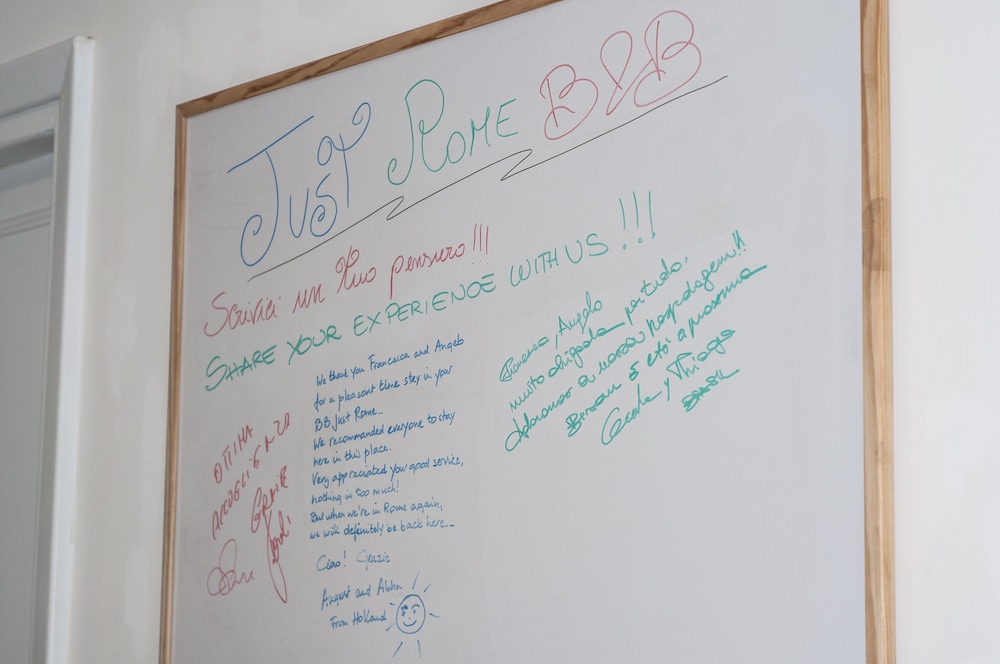 Just Rome B&B
Scrivici un tuo pensiero!!!
SHARE YOUR EXPERIENCE WITH US!!!
OTTIMA
ACCOGLIENZA
GRAZIE
We thank you Francesca and Angelo
for a pleasant time stay in your
BB Just Rome...
We recommanded everyone to stay
here in this place.
Very appreciated your good service,
nothing is too much!
But when we're in Rome again,
we will definitely be back here...
Ciao! Grazie
August and Aloha
From Holland
Francesca, Angelo
muito obrigada por tudo.
Adoramos a nossa hospedagem!!
e até a próxima
y Thiago
BRASIL